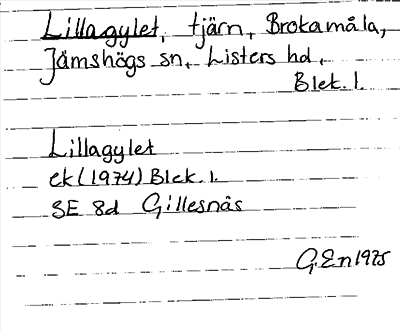 Lillagylet, tjärn, Brokamåla,
Jämshögs sn, Listers hd,
Blek. l.
Lillagylet
ek (1974) Blek. l.
SE 8d Gillesnäs
G. En 1975